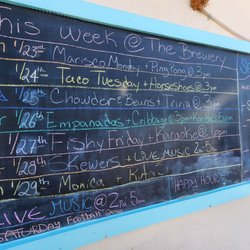 This week @ The Brewery
1/23rd Marisco Monday + Ping Pong @ 3pm
1/24th Taco Tuesday + Horseshoes @ 3pm
1/25th Chowder + Beans + Trivia @ 3pm
1/26th Empanadas + Cribbage @ 3pm + 6pm
1/27th Fishy Friday + Karaoke @ 6pm
1/28th Skewers + Live Music 2-5
1/29th Monica +
LIVE MUSIC @ 2pm-5pm
HAPPY HOUR
SATURDAY Football Games